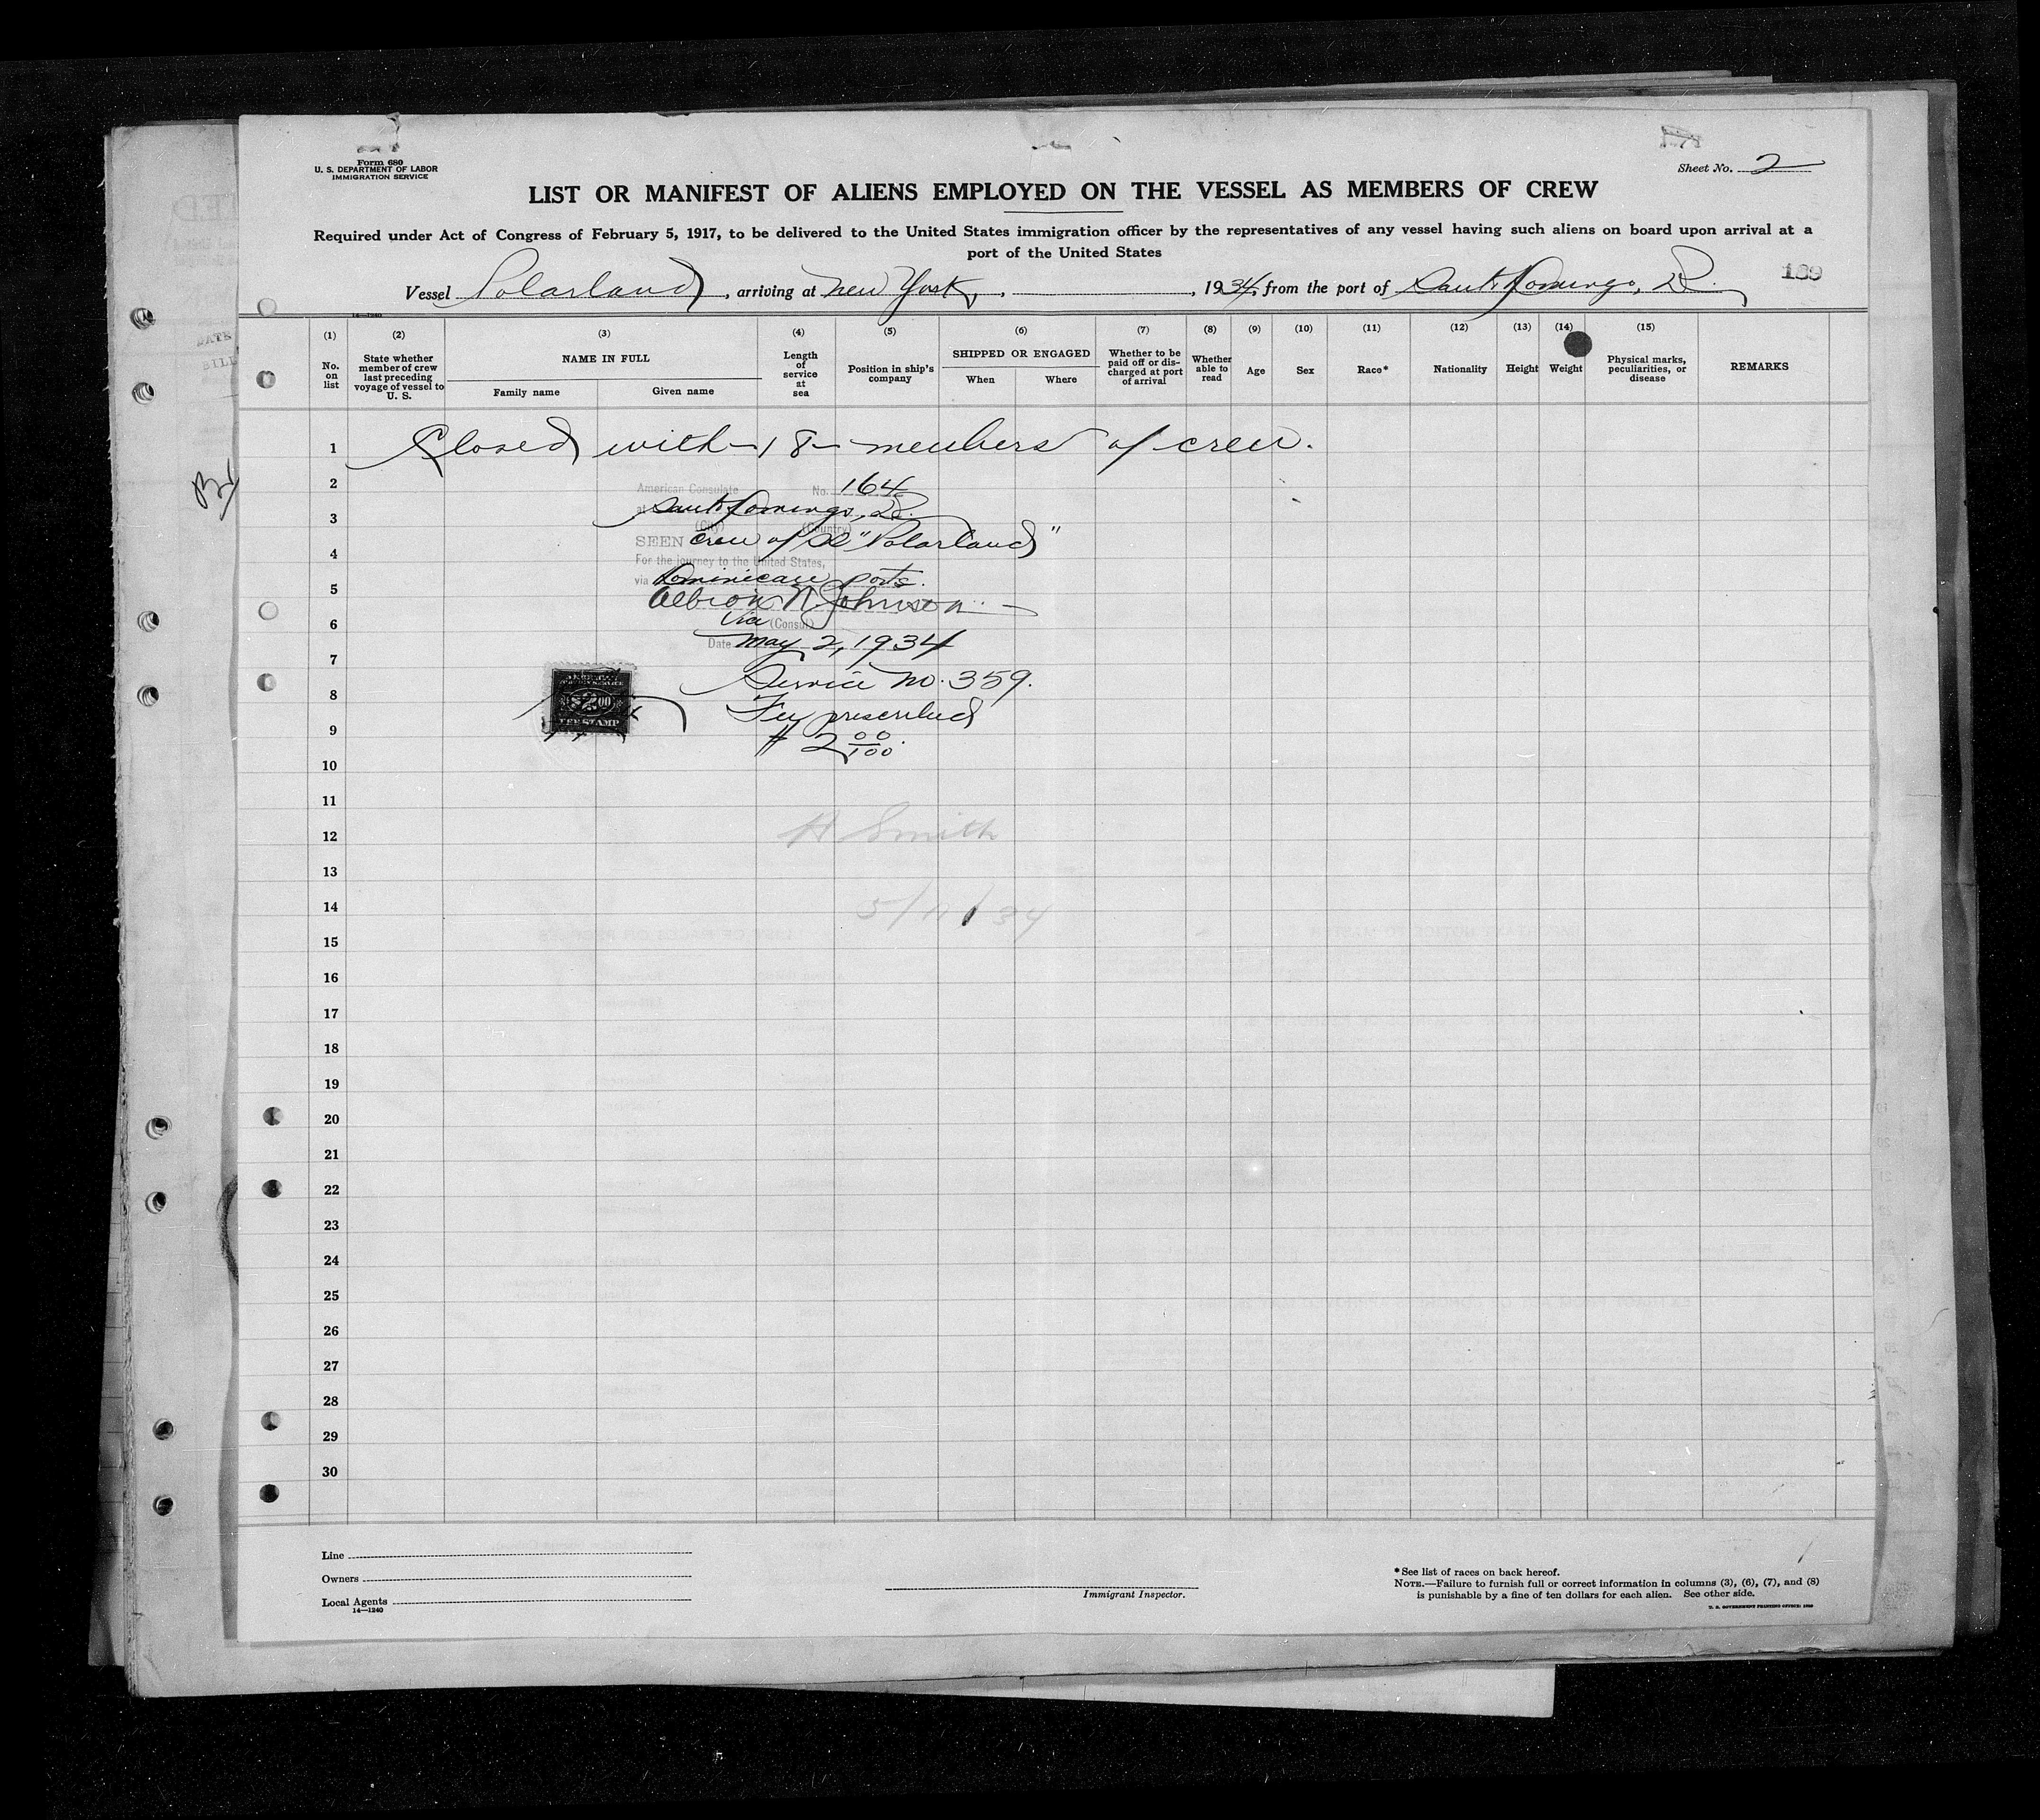 Form 680
U. S. DEPARTMENT OF LABOR
IMMIGRATION SERVICE
Sheet No. 2
LIST OR MANIFEST OF ALIENS EMPLOYED ON THE VESSEL AS MEMBERS OF CREW
Required under Act of Congress of February 5, 1917, to be delivered to the United States immigration officer by the representatives of any vessel having such aliens on board upon arrival at a
port of the United States
189
Vessel Polarland, arriving at New York, , 1934, from the port of Santo Domingo, D.R.
14—1240
(1) (2) (3) (4) (5) (6) (7) (8) (9) (10) (11) (12) (13) (14) (15)
No. on list
State whether member of crew last preceding voyage of vessel to U. S.
NAME IN FULL
Family name
Given name
Length of service at sea
Position in ship's company
SHIPPED OR ENGAGED
When
Where
Whether to be paid off or discharged at port of arrival
Whether able to read
Age
Sex
Race*
Nationality
Height
Weight
Physical marks, peculiarities, or disease
REMARKS
1 Closed with 18 members of crew.
2 American Consulate No. 164
3 at Santo Domingo, D.R.
(City) (Country)
4 SEEN crew of SS "Polarland"
For the journey to the United States,
5 via Dominican ports.
Albion W Johnson
6 Vice (Consul)
Date May 2, 1934
7
8 Service No. 359.
Fee prescribed
9 $ 2 00/100
AMERICAN
$2.00
FEE STAMP
10
11
12 H Smith
13
14 5/11/34
15
16
17
18
19
20
21
22
23
24
25
26
27
28
29
30
Line
Owners
Local Agents
14—1240
Immigrant Inspector.
*See list of races on back hereof.
NOTE.—Failure to furnish full or correct information in columns (3), (6), (7), and (8)
is punishable by a fine of ten dollars for each alien. See other side.